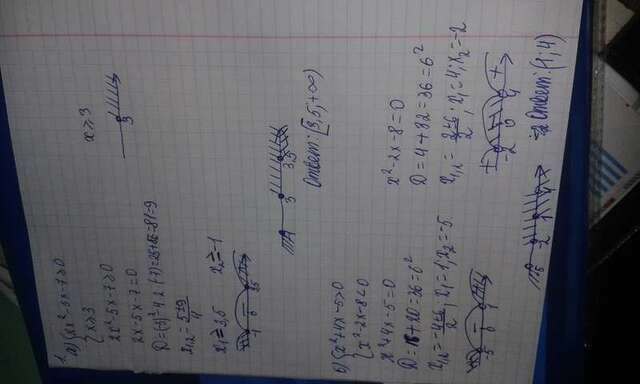 1.
а) { 2x²-5x-7≥0
{ x≥3
2x²-5x-7≥0
2x-5x-7=0
D=(-5)²-4·2·(-7)=25+56=81=9
x₁,₂=5±9/4
x₁=3,5 x₂=-1
x≥3
3
-1 0 3,5
-1 3 3,5
Ответ: [3,5;+∞)
б) { x²+4x-5>0
{ x²-2x-8<0
x²+4x-5=0
D=16+20=36=6²
x₁,₂=-4±6/2; x₁=1; x₂=-5
-5 0 1
x²-2x-8=0
D=4+32=36=6²
x₁,₂=2±6/2; x₁=4; x₂=-2
+ - +
-2 0 4
-5 -2 1 4
Ответ: (1;4)